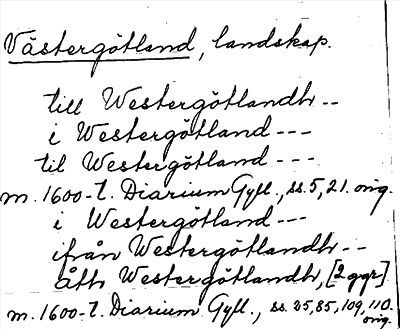 Västergötland, landskap.
till Westergötlandh --
i Westergötland ---
til Westergötland ---
m. 1600-t. Diarium Gyll., ss. 5, 21. orig.
i Westergötland ---
ifrån Westergötlandh --
åth Westergötlandh, [2 ggr]
m. 1600-t. Diarium Gyll., ss. 25, 85, 109, 110.
orig.